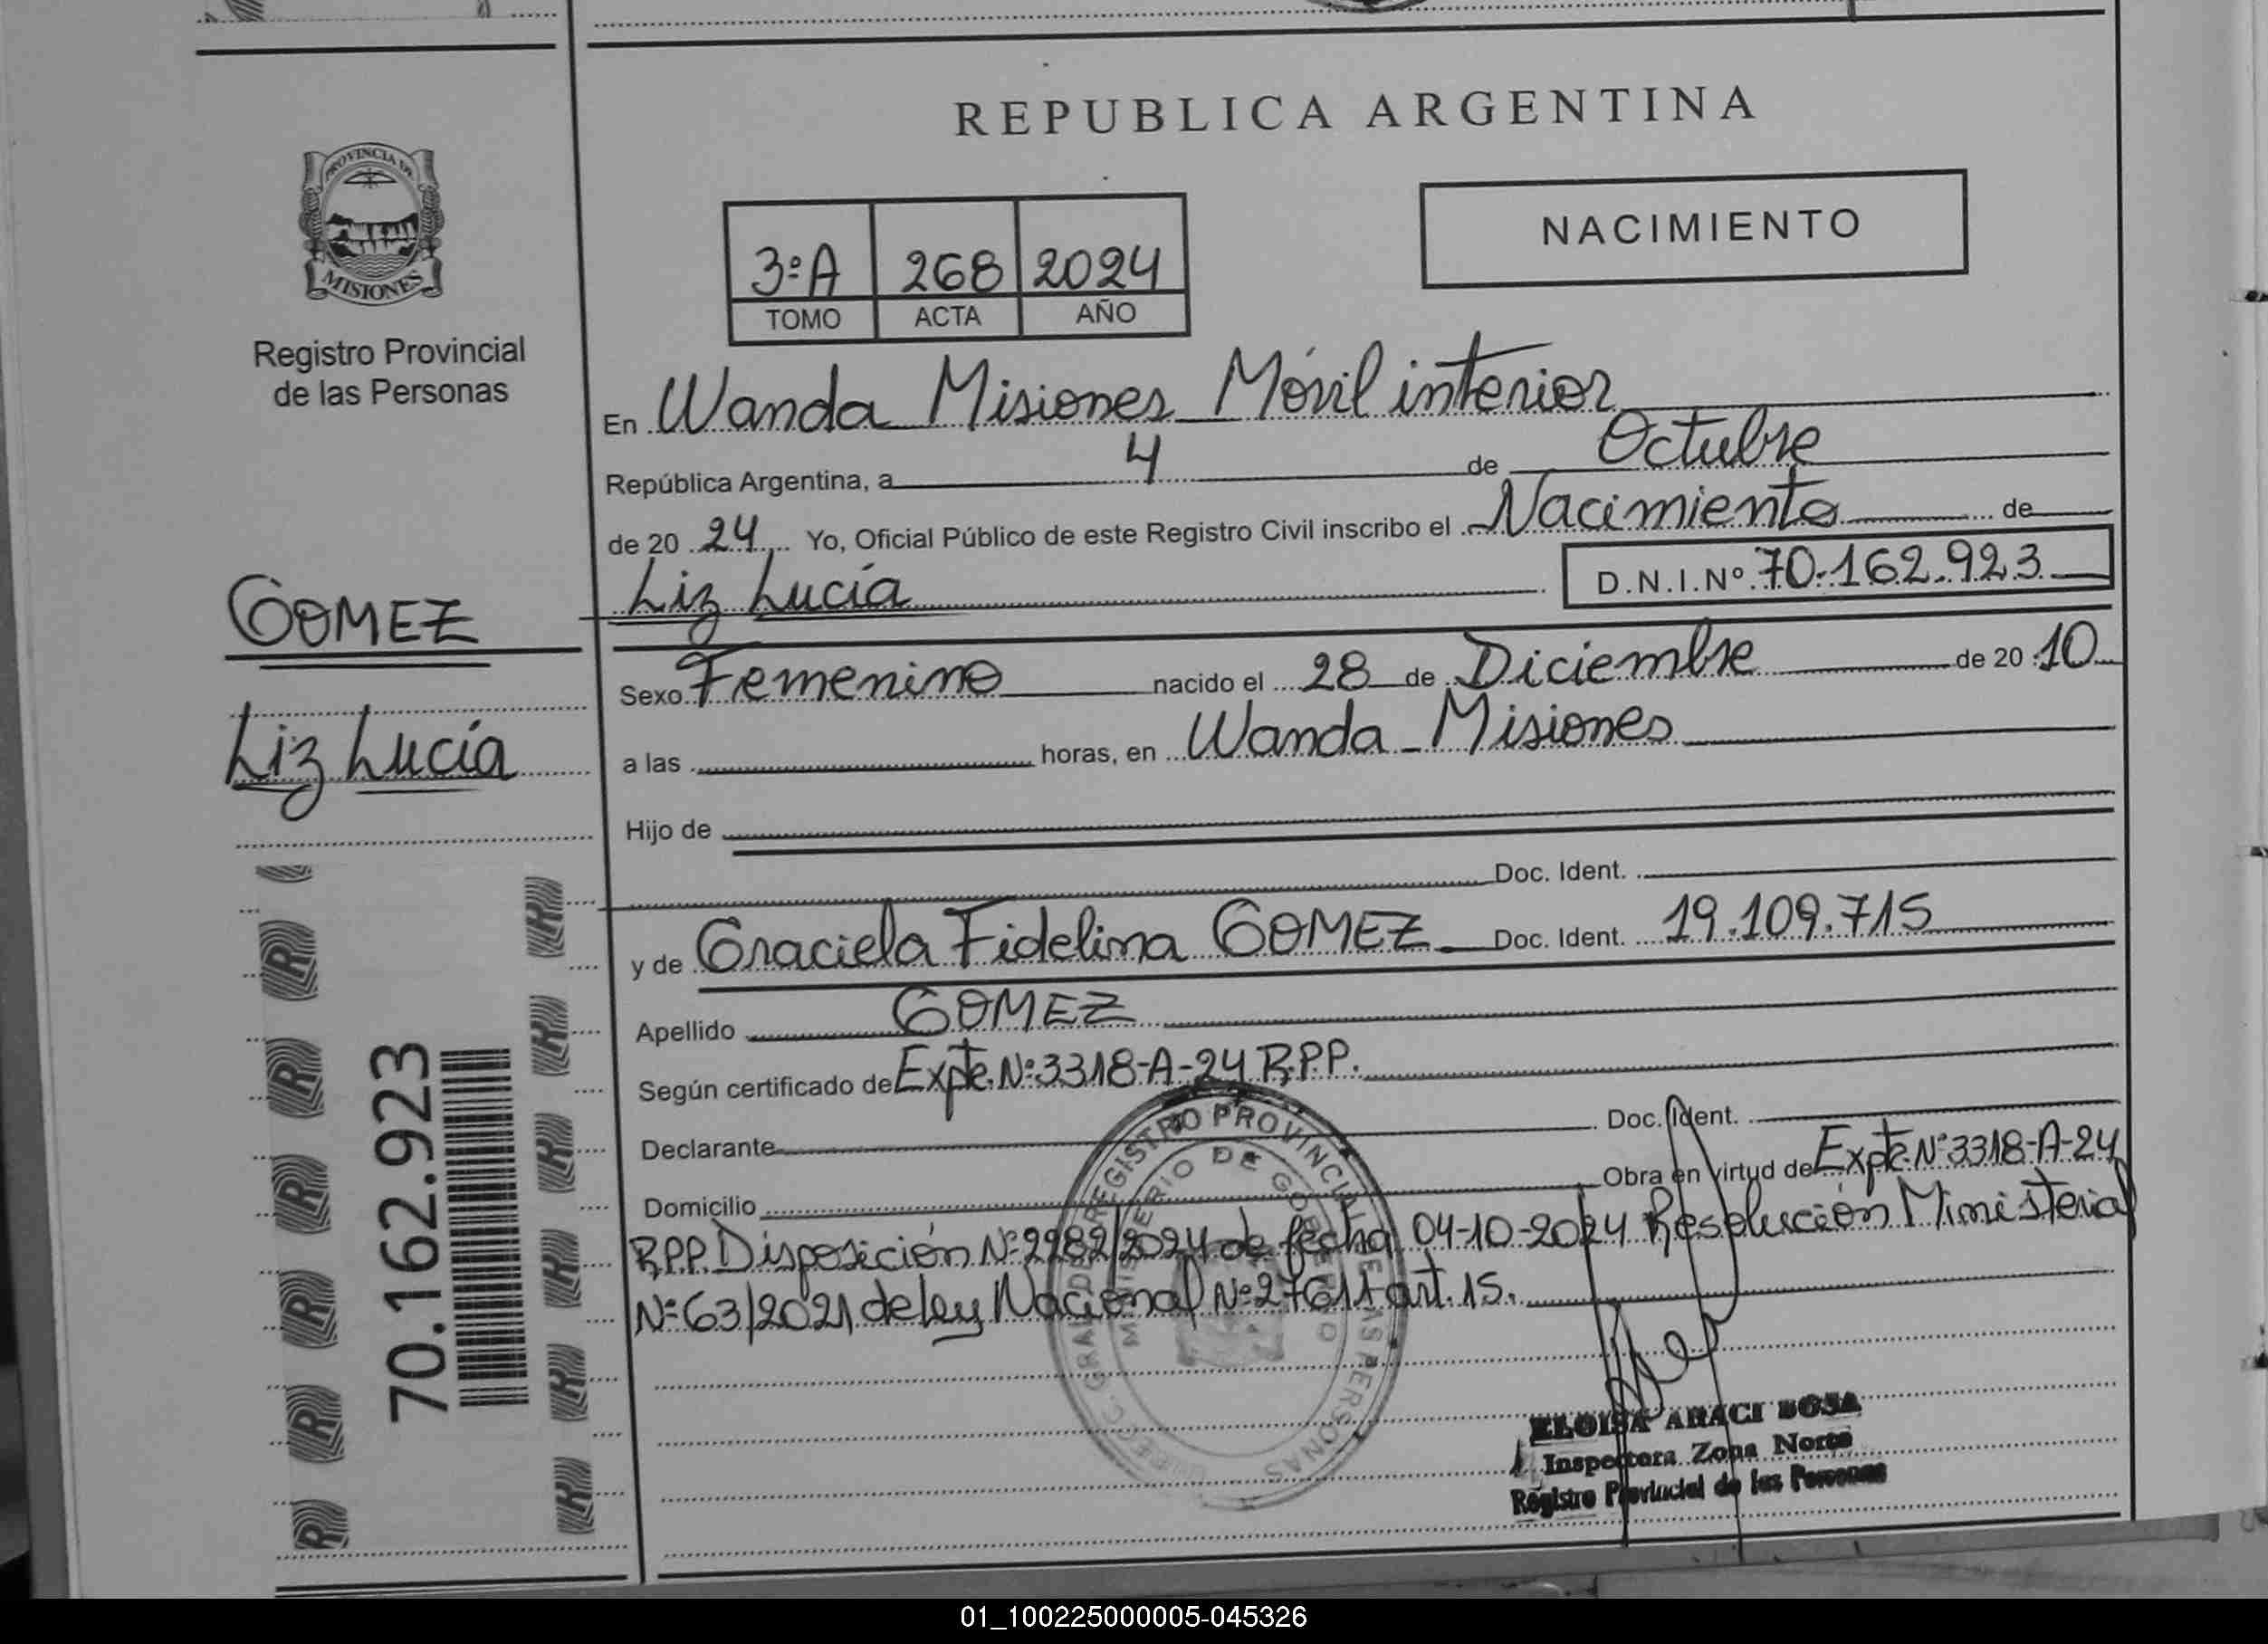 REPUBLICA ARGENTINA
PROVINCIA DE
MISIONES
Registro Provincial
de las Personas
NACIMIENTO
3ºA 268 2024
TOMO ACTA AÑO
En Wanda Misiones Móvil interior
República Argentina, a 4 de Octubre
de 20 24 Yo, Oficial Público de este Registro Civil inscribo el Nacimiento de
Liz Lucía D.N.I.Nº 70.162.923
GOMEZ
Sexo Femenino nacido el 28 de Diciembre de 20 10
Liz Lucía
a las horas, en Wanda - Misiones
Hijo de
Doc. Ident.
y de Graciela Fidelina GOMEZ Doc. Ident. 19.109.715
Apellido GOMEZ
Según certificado de Expte.Nº3318-A-24 R.P.P.
Declarante Doc. Ident.
Domicilio Obra en virtud de Expte.Nº3318-A-24
R.P.P. Disposición Nº2282/2024 de fecha 04-10-2024 Resolución Ministerial
Nº63/2021 de ley Nacional Nº27611 art. 15.
70.162.923
REGISTRO PROVINCIAL DE LAS PERSONAS
MINISTERIO DE GOBIERNO
ELOISA ARACI
Inspectora Zona Norte
Registro Provincial de las Personas
01_100225000005-045326